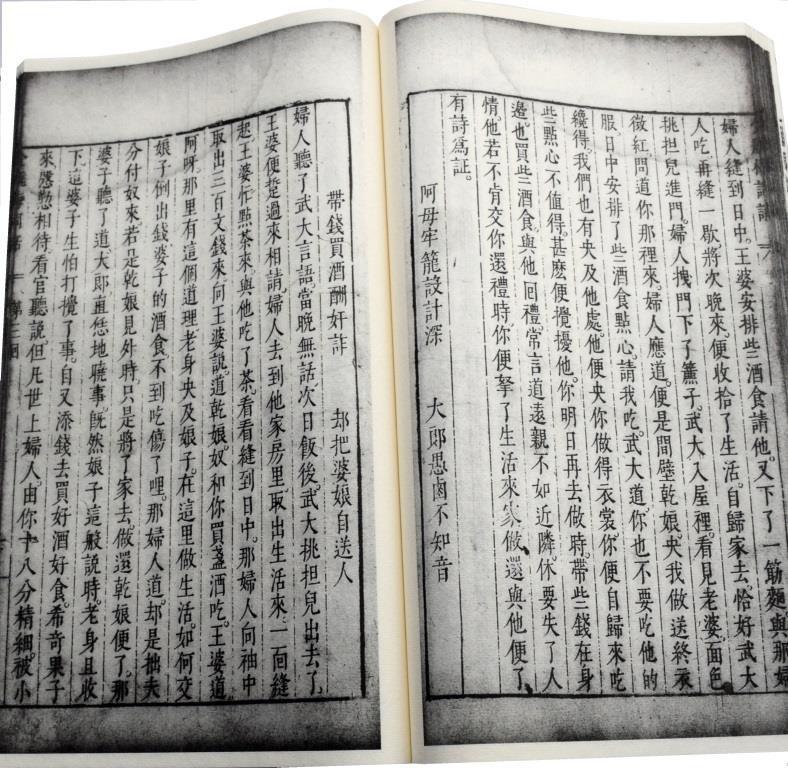 婦人縫到日中。王婆安排些酒食請他。又下了一筯麵與那婦
人吃。再縫一歇。將次晚來便收拾了生活。自歸家去。恰好武大
挑担兒進門。婦人拽門下了簾子。武大入屋裡。看見老婆面色
微紅。問道你那裡來。婦人應道。便是間壁乾娘。央我做送終衣
服。日中安排了些酒食點心。請我吃。武大道。你也不要吃他的
纔得。我們也有央及他處。他便央你做得衣裳。你便自歸來吃
些點心。不值得甚麽。便攪擾他。你明日再去做時。帶些錢在身
邊。也買些酒食。與他回禮。常言道遠親不如近隣。休要失了人
情。他若不肯交你還禮時。你便拏了生活來家做還與他便了。
有詩為証。
阿母牢籠設計深　大郎愚鹵不知音
帶錢買酒酬奸詐　却把婆娘自送人
婦人聽了武大言語。當晚無話。次日飯後。武大挑担兒出去了。
王婆便踅過來相請。婦人去到他家房里。取出生活來。一面縫
起。王婆忙點茶來。與他吃了茶。看看縫到日中。那婦人向袖中
取出三百文錢來。向王婆說道。乾娘奴和你買盞酒吃。王婆道
阿呀。那里有這個道理。老身央及娘子。在這里做生活。如何交
娘子倒出錢。婆子的酒食。不到吃傷了哩。那婦人道。却是拙夫
分付奴來。若是乾娘見外時。只是將了家去。做還乾娘便了。那
婆子聽了道。大郎直恁地曉事。既然娘子這般說時。老身且收
下。這婆子生怕打攪了事。自又添錢去買好酒好食。希奇果子
來。慇懃相待。看官聽說。但凡世上婦人。由你十八分精細。被小
第三回